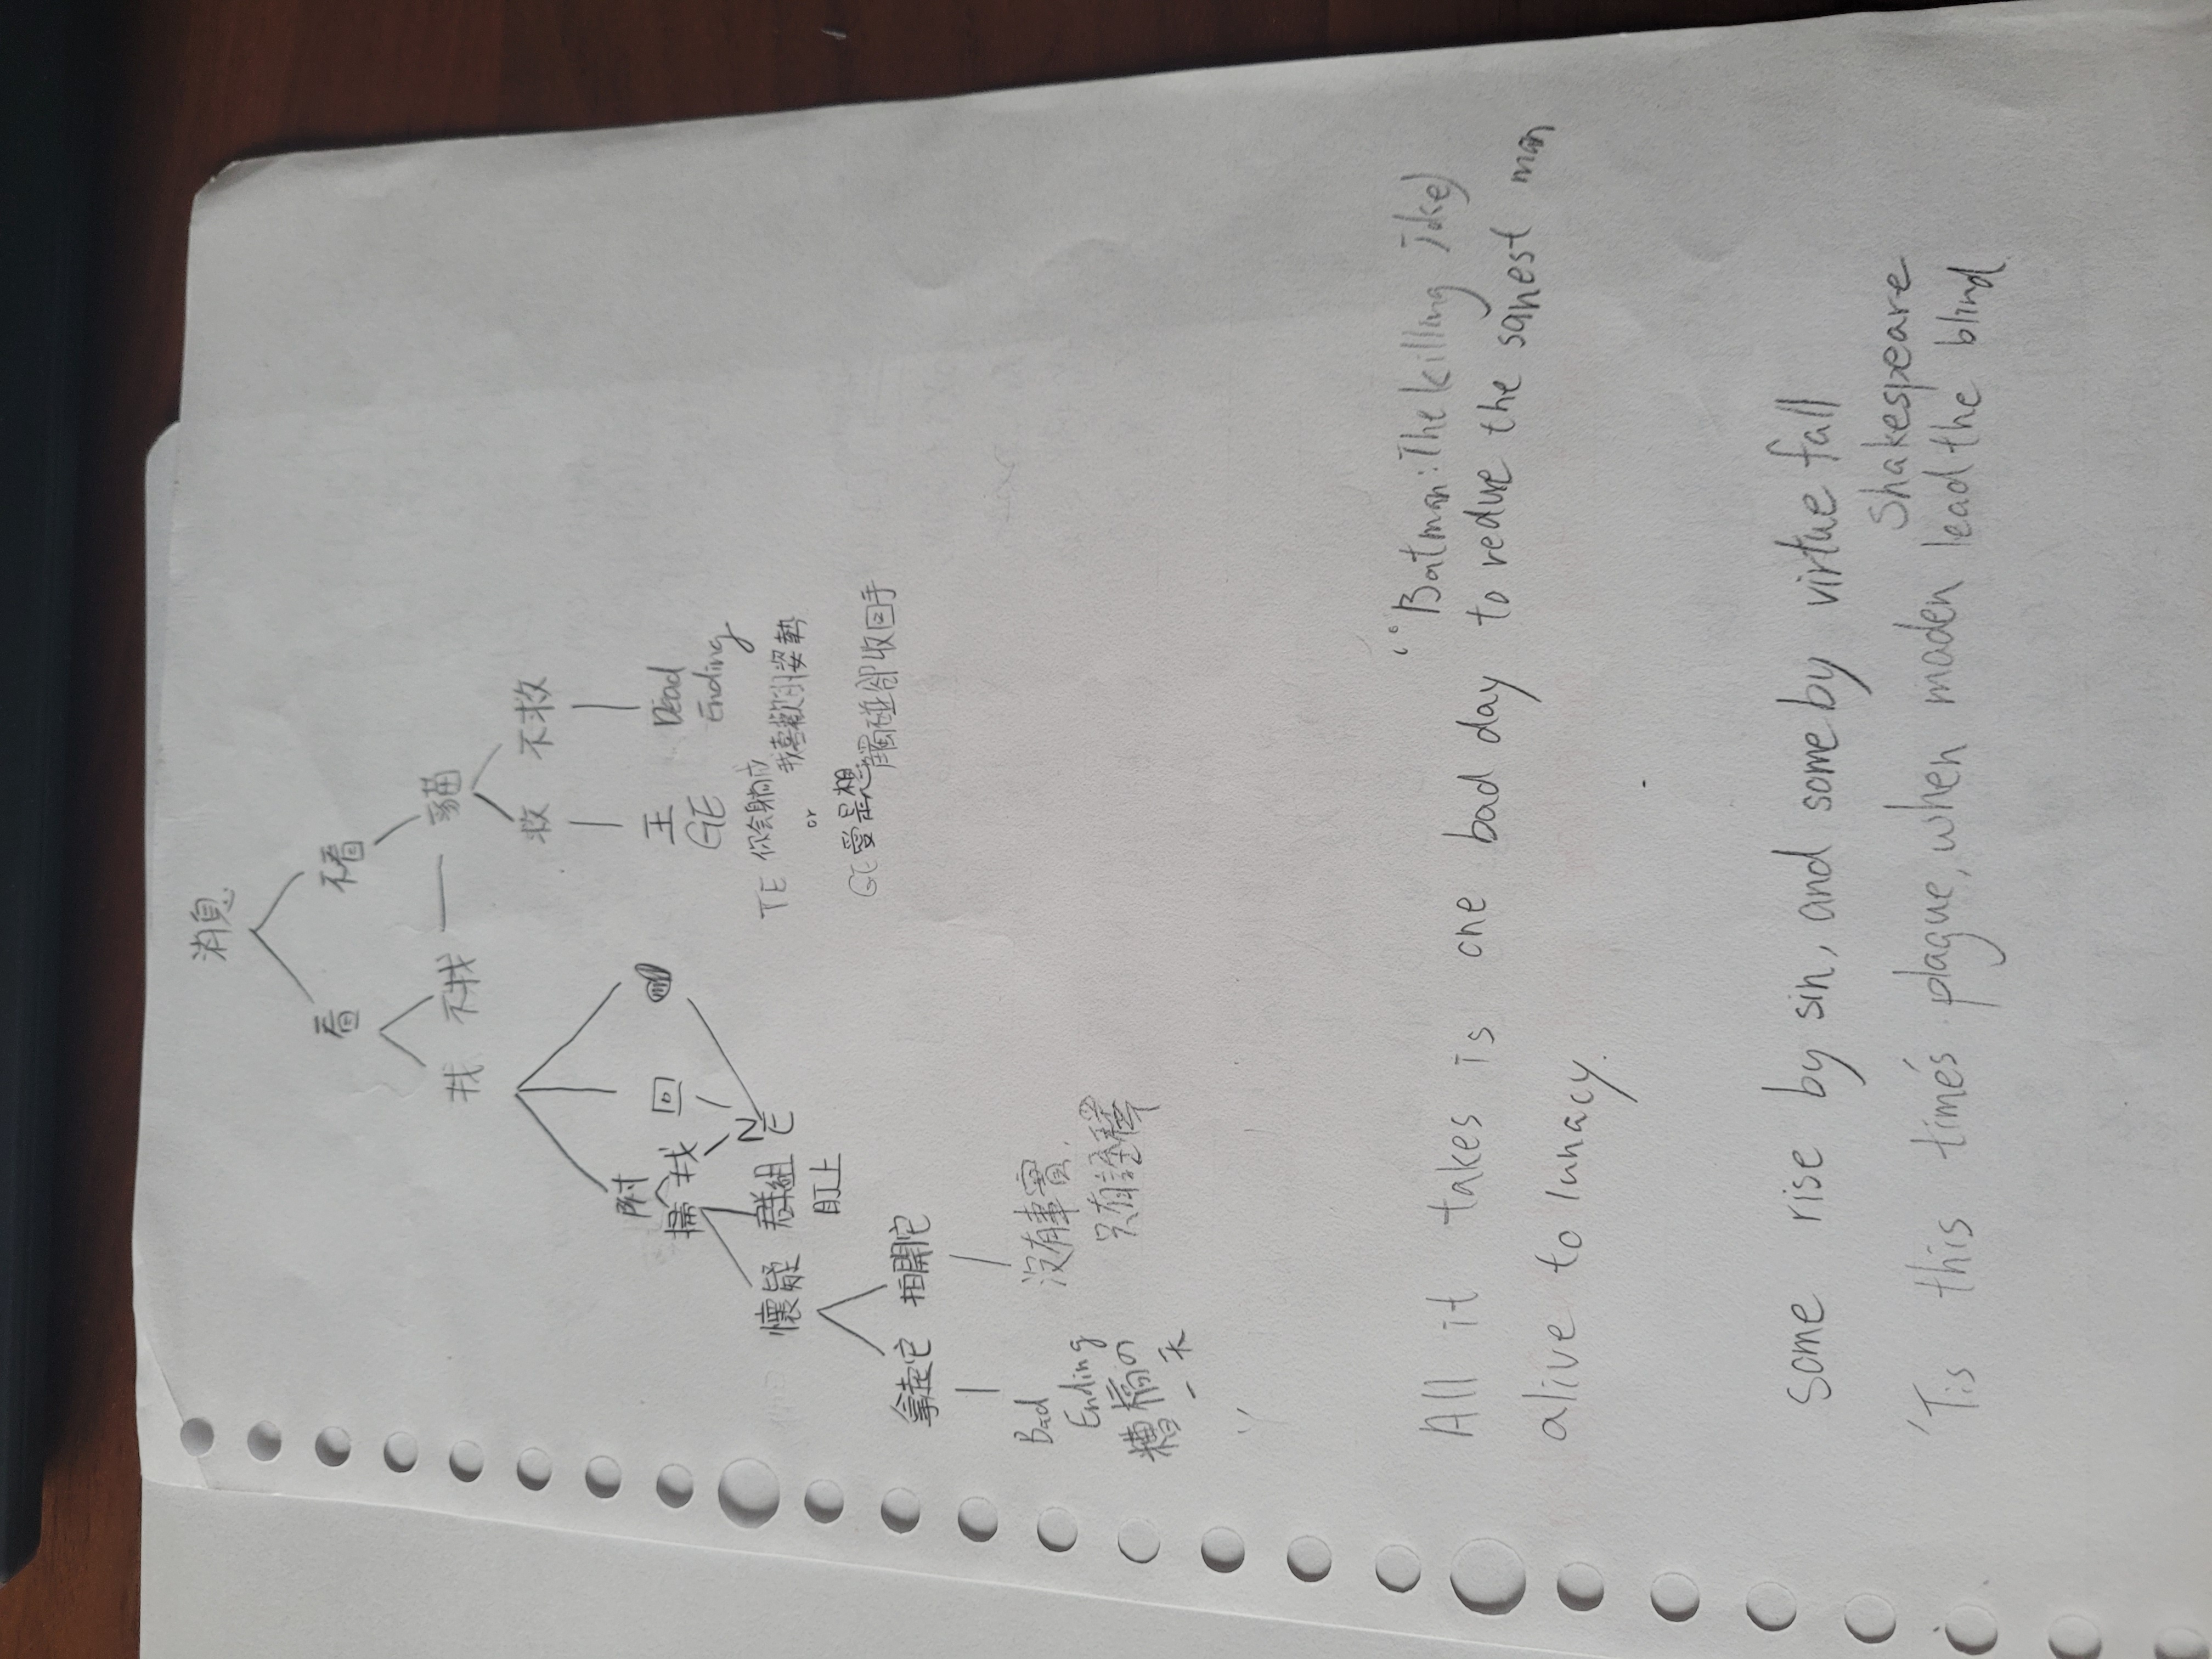 消息
看 不看
找 不找 貓
救 不救
附
掃 找 回
王 Dead
GE Ending
N
E
懷疑 群組
盯上
TE 你会躺成
我喜歡的姿勢
or
GE 愛是想
觸碰卻收回手
拿走它 拍開它
Bad
Ending
糟糕の
一天
沒有事實,
只有詮釋
"Batman: The killing Joke)
All it takes is one bad day to reduce the sanest man
alive to lunacy.
some rise by sin, and some by virtue fall
Shakespeare
'Tis this time's plague, when maden lead the blind